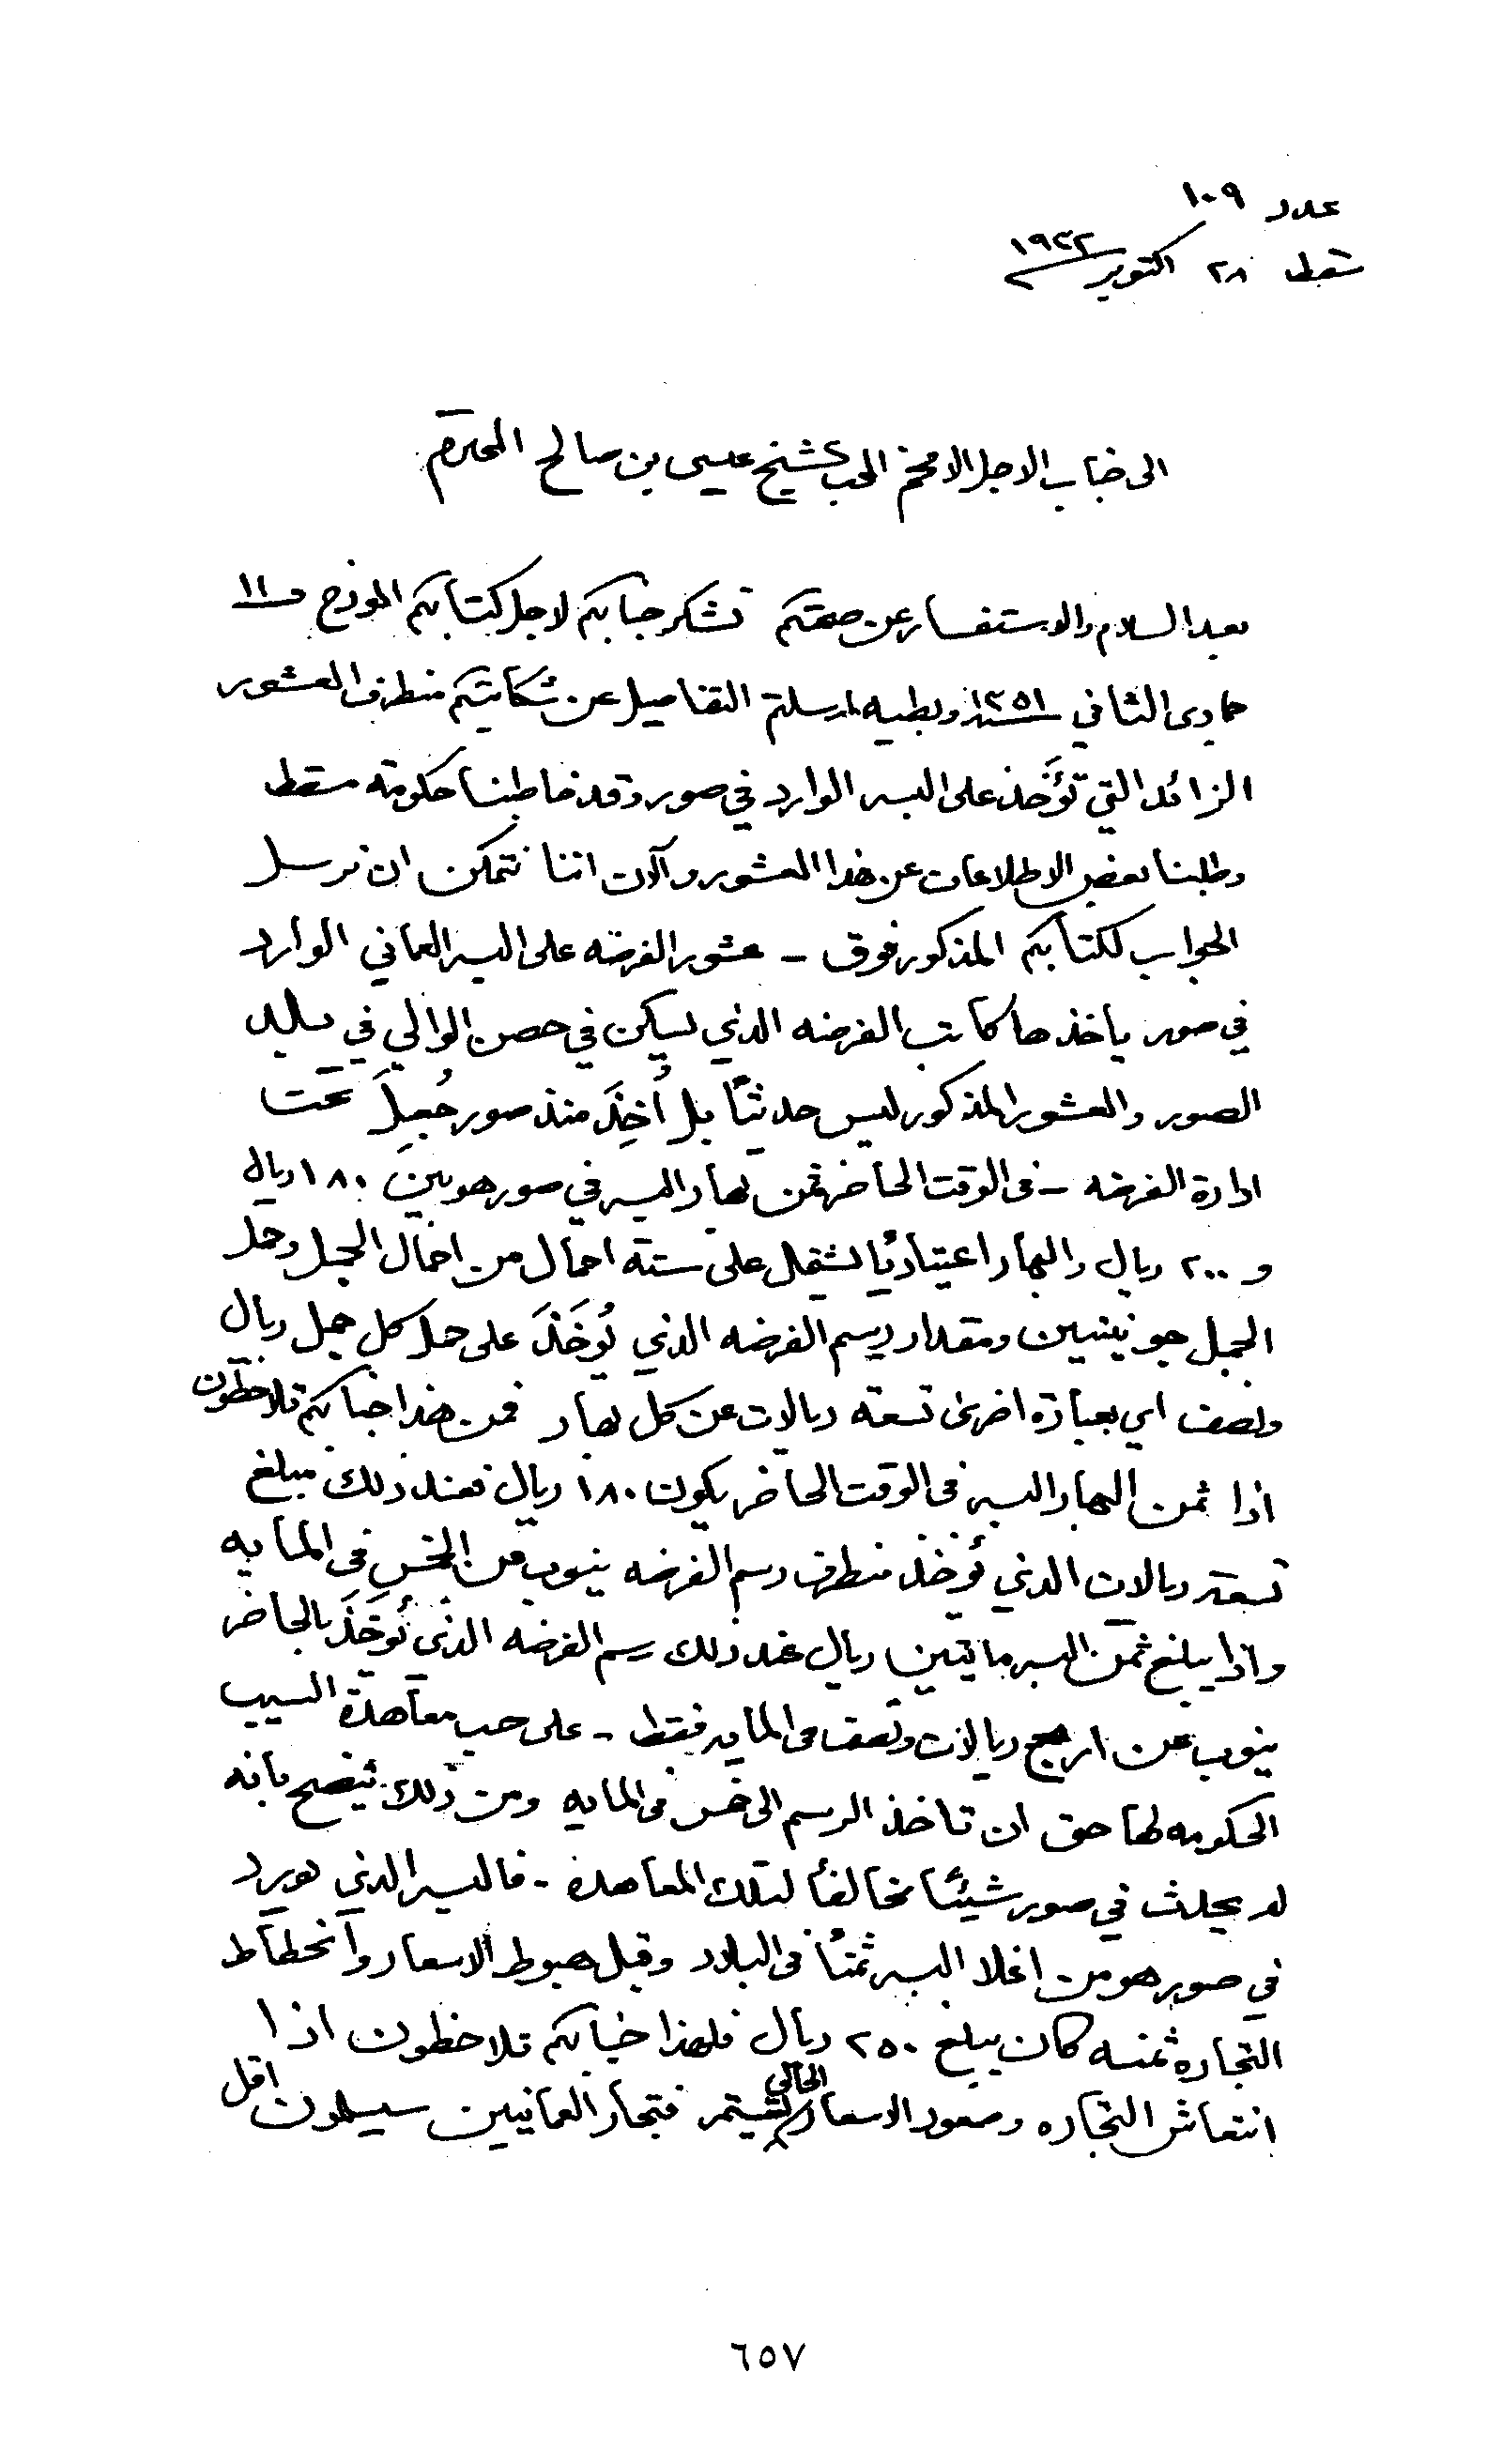 عدد ١٠٩
مسقط ٢٨ اكتوبر ١٩٣٢
الى جناب الاجل الافخم المحب الشيخ عيسى بن صالح المحترم
بعد السلام والاستفسار عن صحتكم نشكر جنابكم لاجل كتابكم المؤرخ ١١
جمادى الثاني ١٣٥١ وبطيه ارسلتم التفاصيل عن شكايتكم منطرف العشور
الزائد التي تؤخذ على البسر الوارد في صور وقد خاطبنا حكومة مسقط
وطلبنا بعض الاطلاعات عن هذا العشور والآن اننا نتمكن ان نرسل
الجواب لكتابكم المذكور فوق - عشور الفرضه على البسر العماني الوارد
في صور ياخذها كاتب الفرضه الذي يسكن في حصن الوالي في بلد
الصور والعشور المذكور ليس حديثاً بل اُخِذَ منذ صور جُعِلَ تحت
ادارة الفرضه - في الوقت الحاضر ثمن بهار البسر في صور هو بين ١٨٠ ريال
و ٢٠٠ ريال والبهار اعتيادياً يشتمل على ستة احمال من احمال الجمل وحمل
الجمل جونيتين ومقدار رسم الفرضه الذي يُؤخَذَ على حمل كل جمل ريال
ونصف اي بعبارة اخرى تسعة ريالات عن كل بهار فمن هذا جنابكم تلاحظون
اذا ثمن البهار البسر في الوقت الحاضر يكون ١٨٠ ريال فعند ذلك مبلغ
تسعة ريالات الذي يُؤخذ منطرف رسم الفرضه ينوب عن الخمس في المايه
واذا يبلغ ثمن البسر مائتين ريال عند ذلك رسم الفرضه الذي يُؤخَذَ بالحاضر
ينوب عن اربع ريالات ونصف في المايه فقط - على حسب معاهدة السيب
الحكومه لها حق ان تاخذ الرسم الى خمس في المايه ومن ذلك يتضح بانه
لم يحدث في صور شيئاً مخالفاً لتلك المعاهدة - فالبسر الذي يورد
في صور هو من اغلا البسر ثمناً في البلاد وقبل هبوط الاسعار وانحطاط
التجاره ثمنه كان يبلغ ٢٥٠ ريال فلهذا جنابكم تلاحظون اذا
انتعاش التجاره وصعود الاسعار الحالي يستمر فتجار العمانيين سيسلمون اقل
٦٥٧